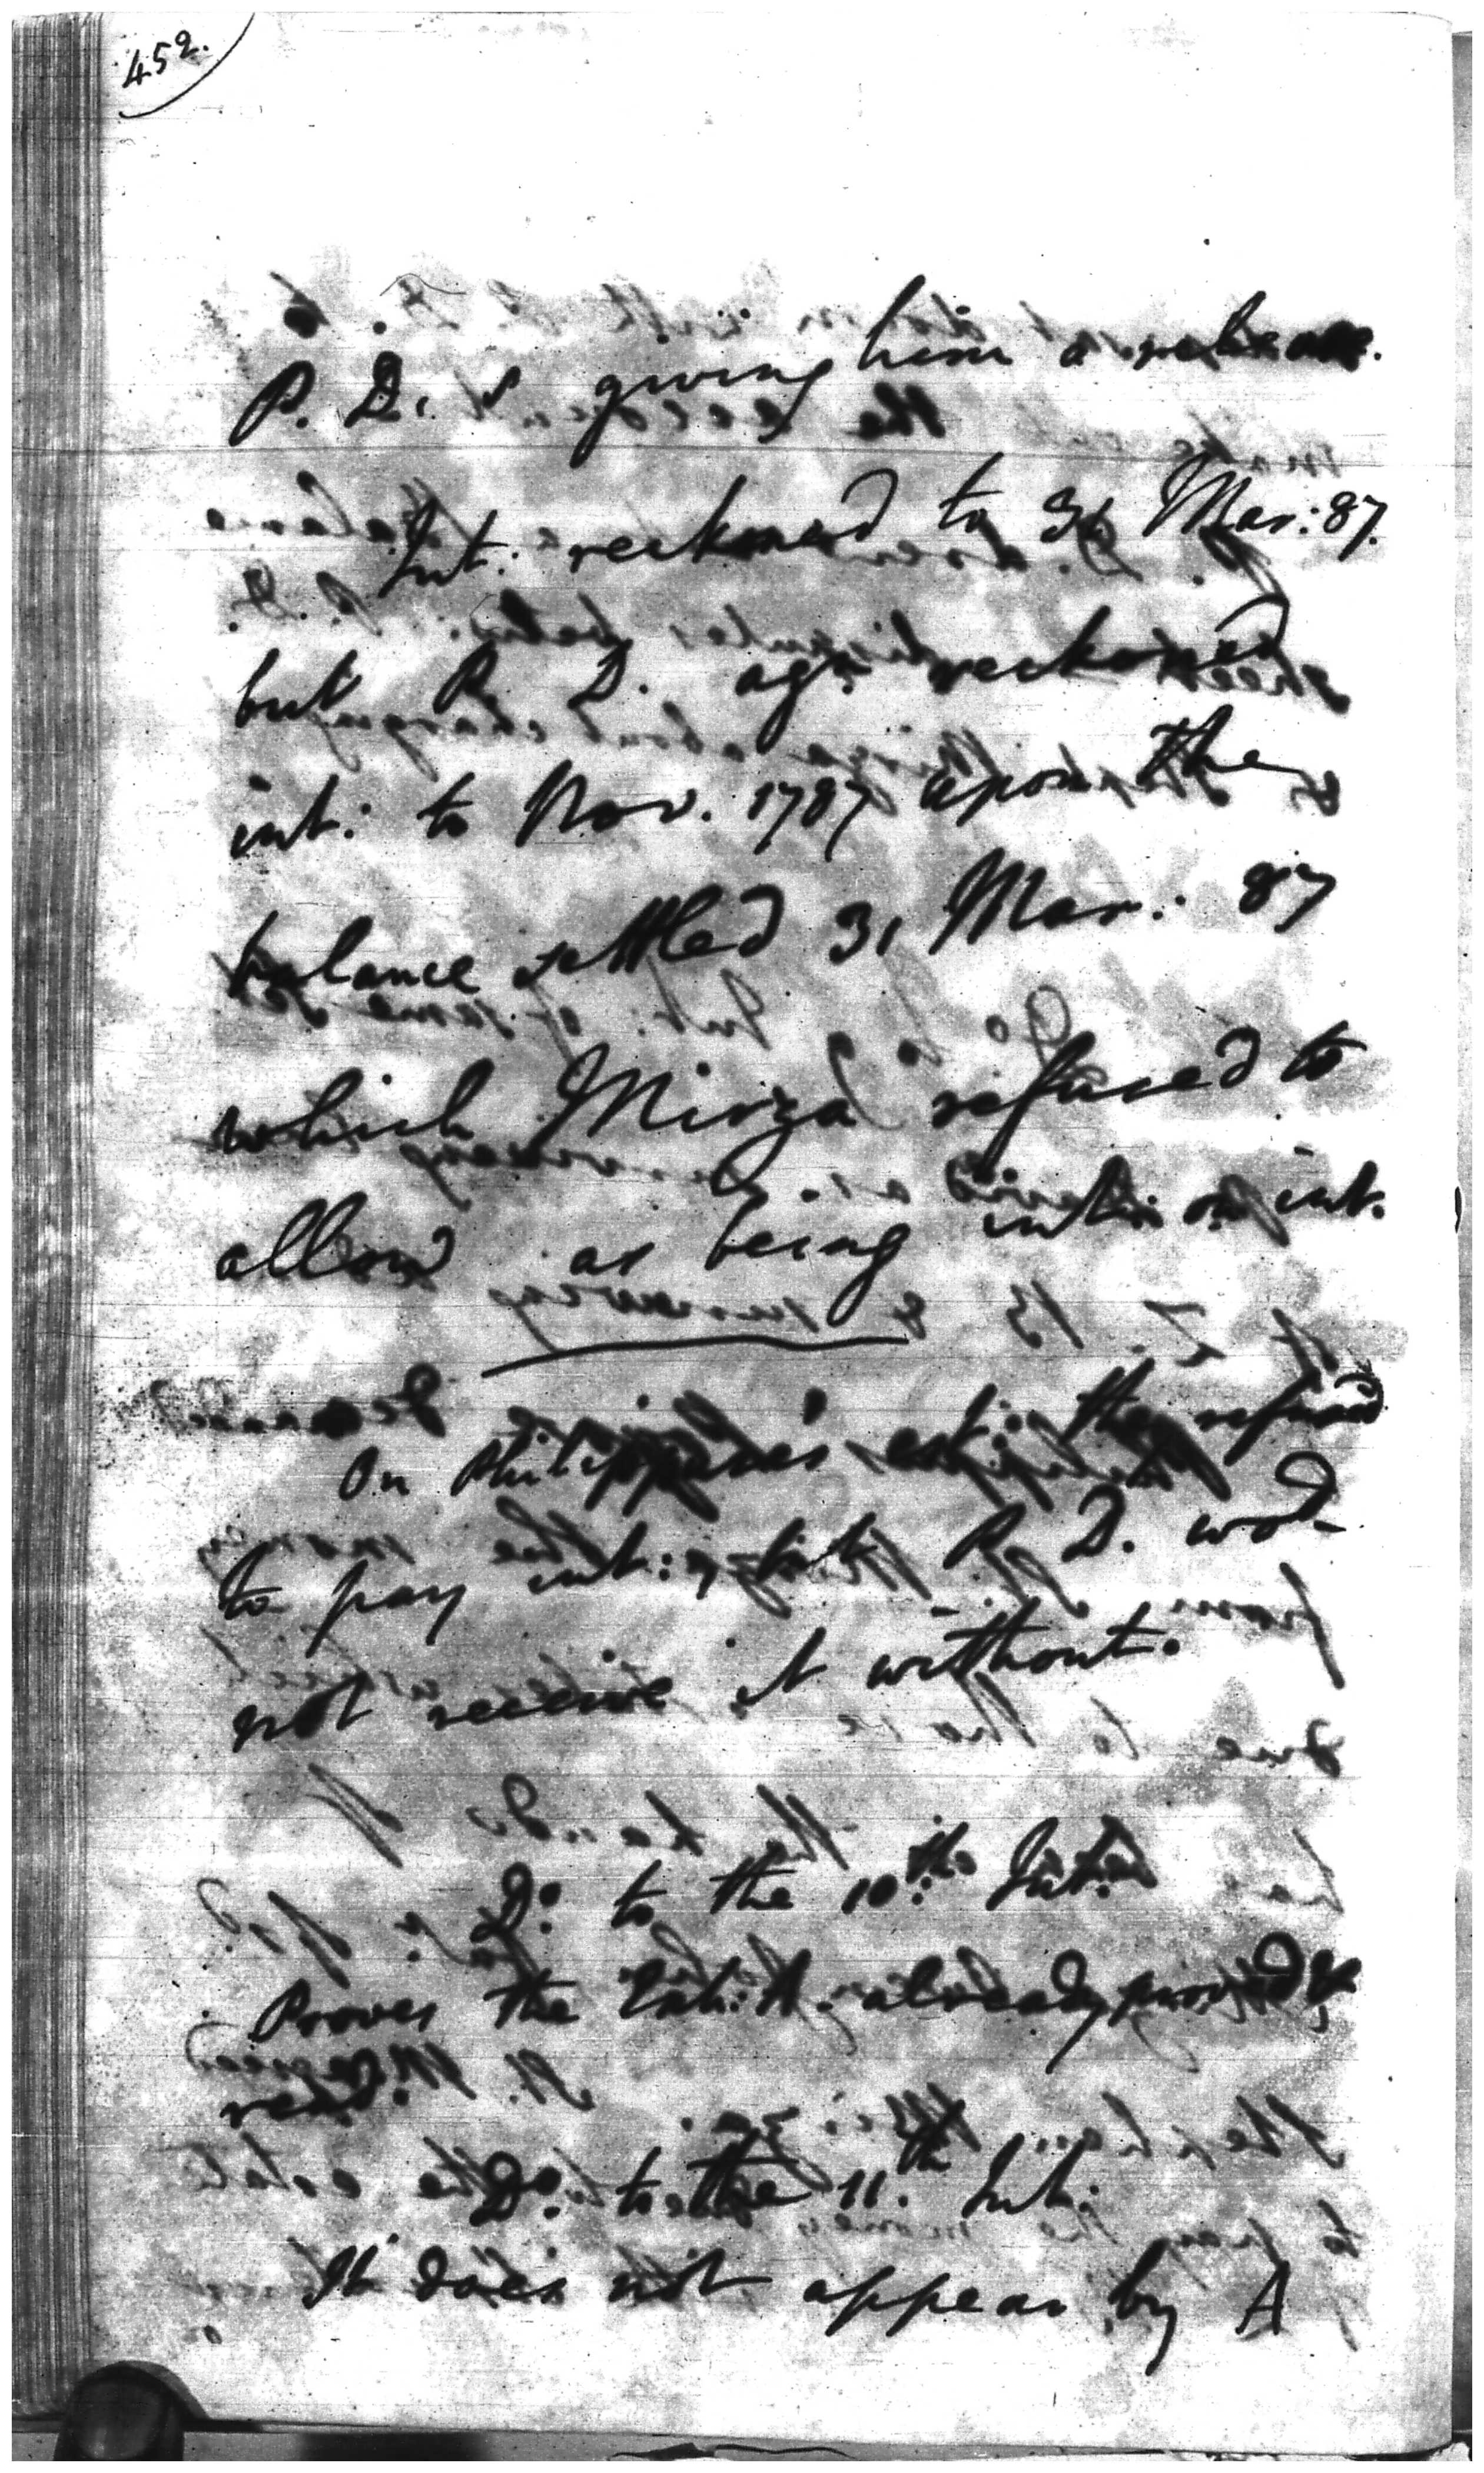 452.
P. D. & giving him a release.
Int: reckoned to 31 Mar: 87.
but P. D. agn. reckoned
int: to Nov. 1787 upon the
balance settled 31 Mar: 87
which Mirza refused to
allow as being int: on int.
On Philip
est: they refused
to pay int: but P. D. wod.
not receive it without.
Do. to the 10th. Int:
Proves the Exh: A. already proved &
read.
Do. to the 11th. Int:
It does not appear by A